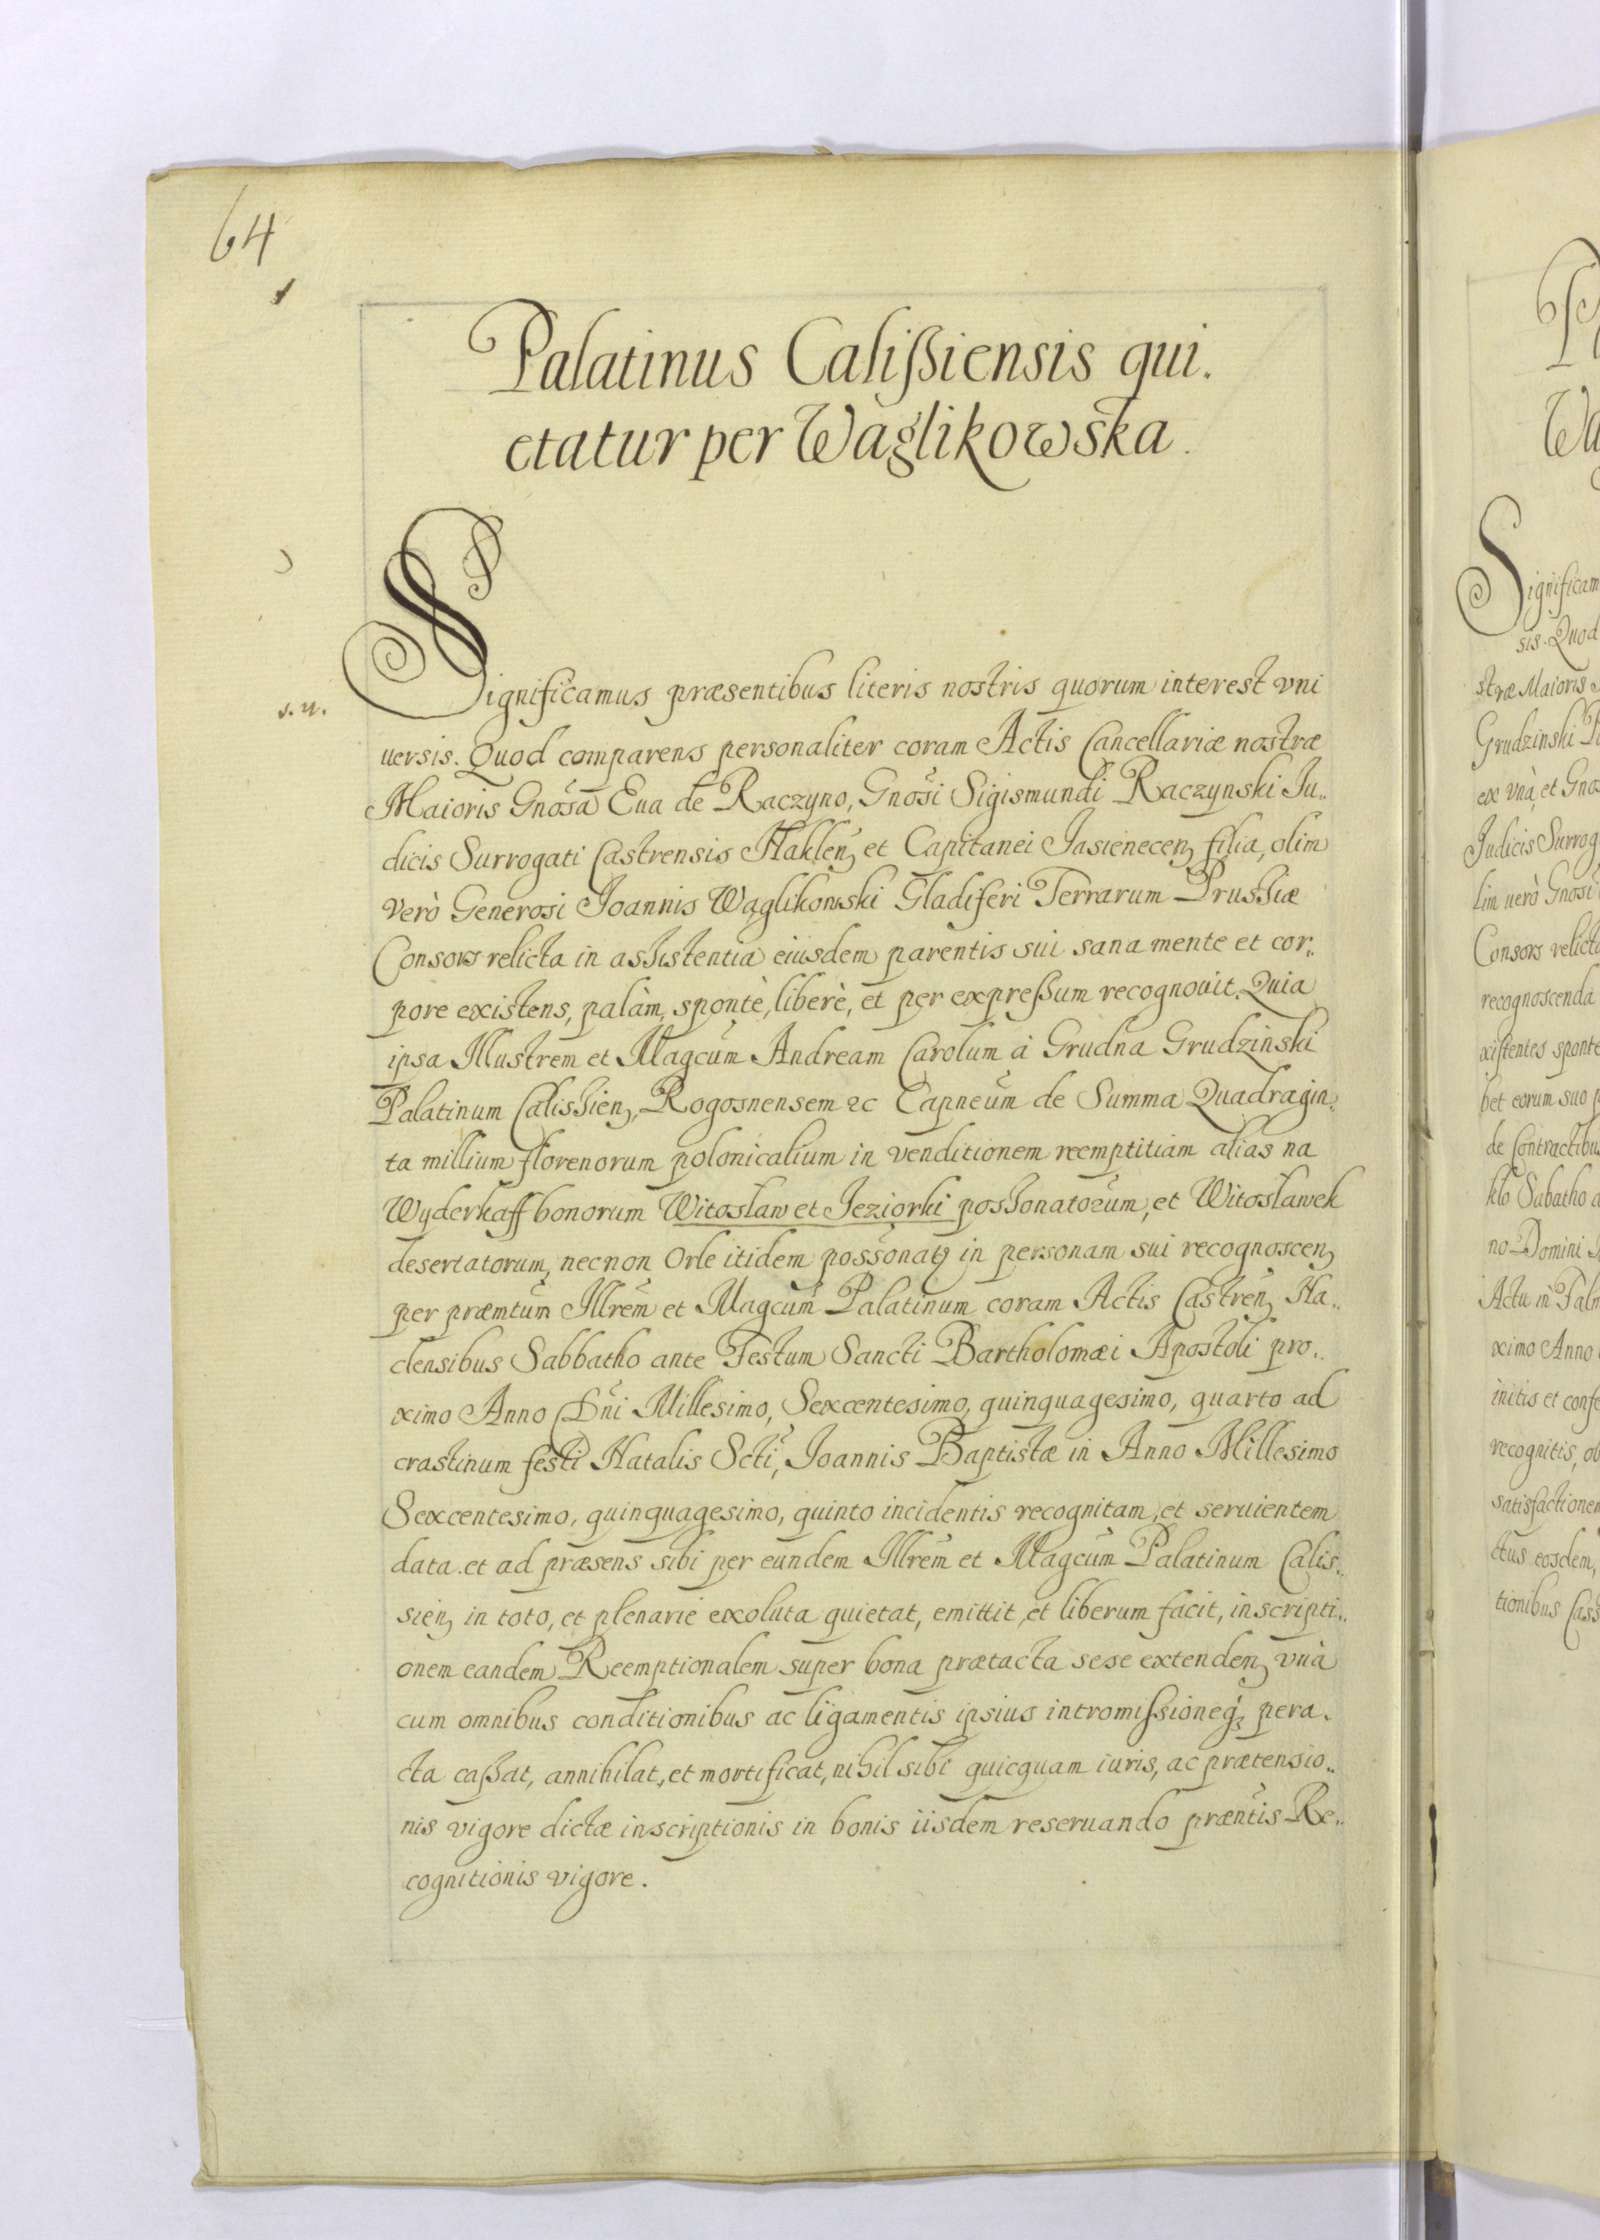 64
Palatinus Calißiensis qui.
etatur per Waglikowska.
Significamus præsentibus literis nostris quorum interest vni
s. u.
uersis. Quod comparens personaliter coram Actis Cancellariæ nostræ
Maioris Gnosa Eua de Raczyno, Gnosi Sigismundi Raczynski Iu..
dicis Surrogati Castrensis Naklen, et Capitanei Jasienecen, filia, olim
verò Generosi Joannis Waglikowski Gladiferi Terrarum Prussiæ
Consors relicta in assistentia eiusdem parentis sui sana mente et cor..
pore existens, palàm, spontè, liberè, et per expreßum recognouit. Quia
ipsa Illustrem et Magcum Andream Carolum à Grudna Grudzinski
Palatinum Calissien, Rogosnensem &c Capneum de Summa Quadragin..
ta millium florenorum polonicalium in venditionem reemptitiam alias na
Wyderkaff bonorum Witoslaw et Jeziorki possonatorum, et Witoslawek
desertatorum, necnon Orle itidem possonatq in personam sui recognoscen,
per præmtum Illrem et Magcum Palatinum coram Actis Castren, Na..
clensibus Sabbatho ante Festum Sancti Bartholomæi Apostoli pro..
ximo Anno Dni Millesimo, Sexcentesimo, quinquagesimo, quarto ad
crastinum festi Natalis Scti, Joannis Baptistæ in Anno Millesimo
Sexcentesimo, quinquagesimo, quinto incidentis recognitam, et seruientem
data. et ad præsens sibi per eundem Illrem et Magcum Palatinum Calis..
sien, in toto, et plenarie exoluta quietat, emittit, et liberum facit, inscripti..
onem eandem Reemptionalem super bona prætacta sese extenden, vnà
cum omnibus conditionibus ac ligamentis ipsius intromißioneq, pera.
cta caßat, annihilat, et mortificat, nihil sibi quicquam iuris, ac prætensio..
nis vigore dictæ inscriptionis in bonis iisdem reseruando præntis Re..
cognitionis vigore.
Significam
sis. Quod
stræ Maioris
Grudzinski
ex vnà, et Gnos
Judicis Surrog
lim uerò Gnosi
Consors relicta
recognoscenda
xistentes sponte
bet eorum suo p
de Contractibu
klo Sabatho a
no Domini
Actu in
ximo Anno
initis et confe
recognitis, ob
satisfactionem
ctus eosdem,
tionibus Cass